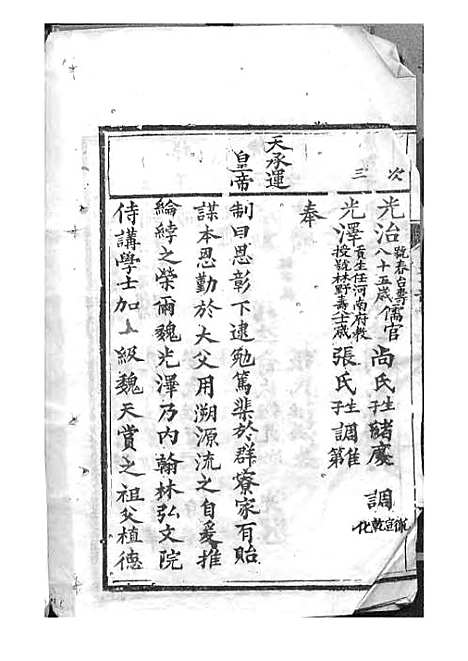 次 光治 號春台壽八十五歲 儒官 尚氏 生子 緒慶 調 徽宣乾化
三 光澤 貢生任河南府教授號林野壽六十歲 張氏 生子 調
奉
天承運
皇帝
制曰恩彰下逮勉篤棐於群寮家有貽
謀本恩勤於大父用溯源流之自爰推
綸綍之榮爾魏光澤乃內翰林弘文院
侍講學士加一級魏天賞之祖父植德